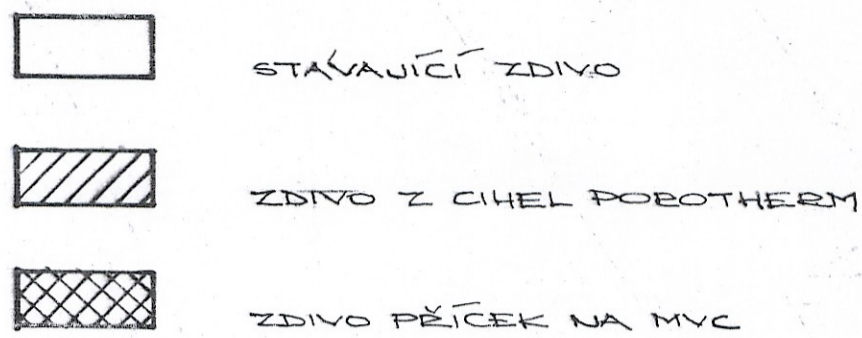 STÁVAJÍCÍ ZDIVO
ZDIVO Z CIHEL POROTHERM
ZDIVO PŘÍČEK NA MVC